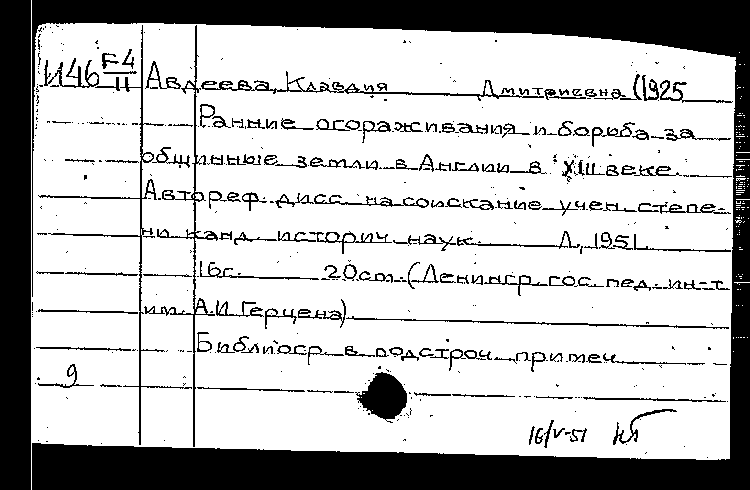 И46 F-4/II Авдеева, Клавдия Дмитриевна (1925
Ранние огораживания и борьба за
общинные земли в Англии в XIII веке.
Автореф. дисс. на соискание учен. степе-
ни канд. историч. наук. Л., 1951.
16с. 20см. (Ленингр. гос. пед. ин-т
им. А.И. Герцена).
Библиогр. в подстроч. примеч.
9
16/V-51